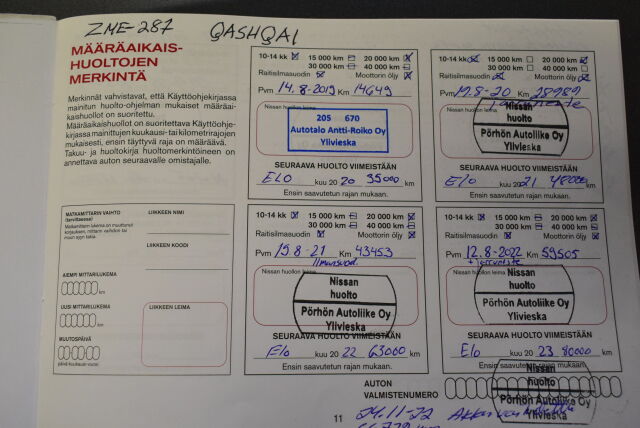 ZME-287 QASHQAI
MÄÄRÄAIKAIS-
HUOLTOJEN
MERKINTÄ
Merkinnät vahvistavat, että Käyttöohjekirjassa
mainitun huolto-ohjelman mukaiset määräai-
kaishuollot on suoritettu.
Määräaikaishuollot on suoritettava Käyttöohje-
kirjassa mainittujen kuukausi- tai kilometrirajojen
mukaisesti, ensin täyttyvä raja on määräävä.
Takuu- ja huoltokirja huoltomerkintöineen on
annettava auton seuraavalle omistajalle.
10-14 kk 15 000 km 20 000 km
30 000 km 40 000 km
Raitisilmasuodin Moottorin öljy
Pvm 14.8-2019 Km 14649
Nissan huollon leima
205 670
Autotalo Antti-Roiko Oy
Ylivieska
SEURAAVA HUOLTO VIIMEISTÄÄN
ELO kuu 20 20 35000 km
Ensin saavutetun rajan mukaan.
10-14 kk 15 000 km 20 000 km
30 000 km 40 000 km
Raitisilmasuodin Moottorin öljy
Pvm Km 28989
Nissan
huolto
Pörhön Autoliike Oy
Ylivieska
SEURAAVA HUOLTO VIIMEISTÄÄN
Elo kuu 20 21 48000 km
Ensin saavutetun rajan mukaan.
10-14 kk 15 000 km 20 000 km
30 000 km 40 000 km
Raitisilmasuodin Moottorin öljy
Pvm 19.8-21 Km 43453
Ilmansuod.
Nissan huollon leima
Nissan
huolto
Pörhön Autoliike Oy
Ylivieska
SEURAAVA HUOLTO VIIMEISTÄÄN
Elo kuu 20 22 63000 km
Ensin saavutetun rajan mukaan.
10-14 kk 15 000 km 20 000 km
30 000 km 40 000 km
Raitisilmasuodin Moottorin öljy
Pvm 12.8-2022 Km 59505
+ jarruneste
Nissan huollon leima
Nissan
huolto
Pörhön Autoliike Oy
Ylivieska
SEURAAVA HUOLTO VIIMEISTÄÄN
Elo kuu 20 23 80000 km
Ensin saavutetun rajan mukaan.
MATKAMITTARIN VAIHTO
(tarvittaessa)
LIIKKEEN NIMI
LIIKKEEN KOODI
AIEMPI MITTARILUKEMA
km
UUSI MITTARILUKEMA
km
LIIKKEEN LEIMA
MUUTOSPÄIVÄ
AUTON
VALMISTENUMERO
Nissan
huolto
Pörhön Autoliike Oy
Ylivieska
11
24.11-22